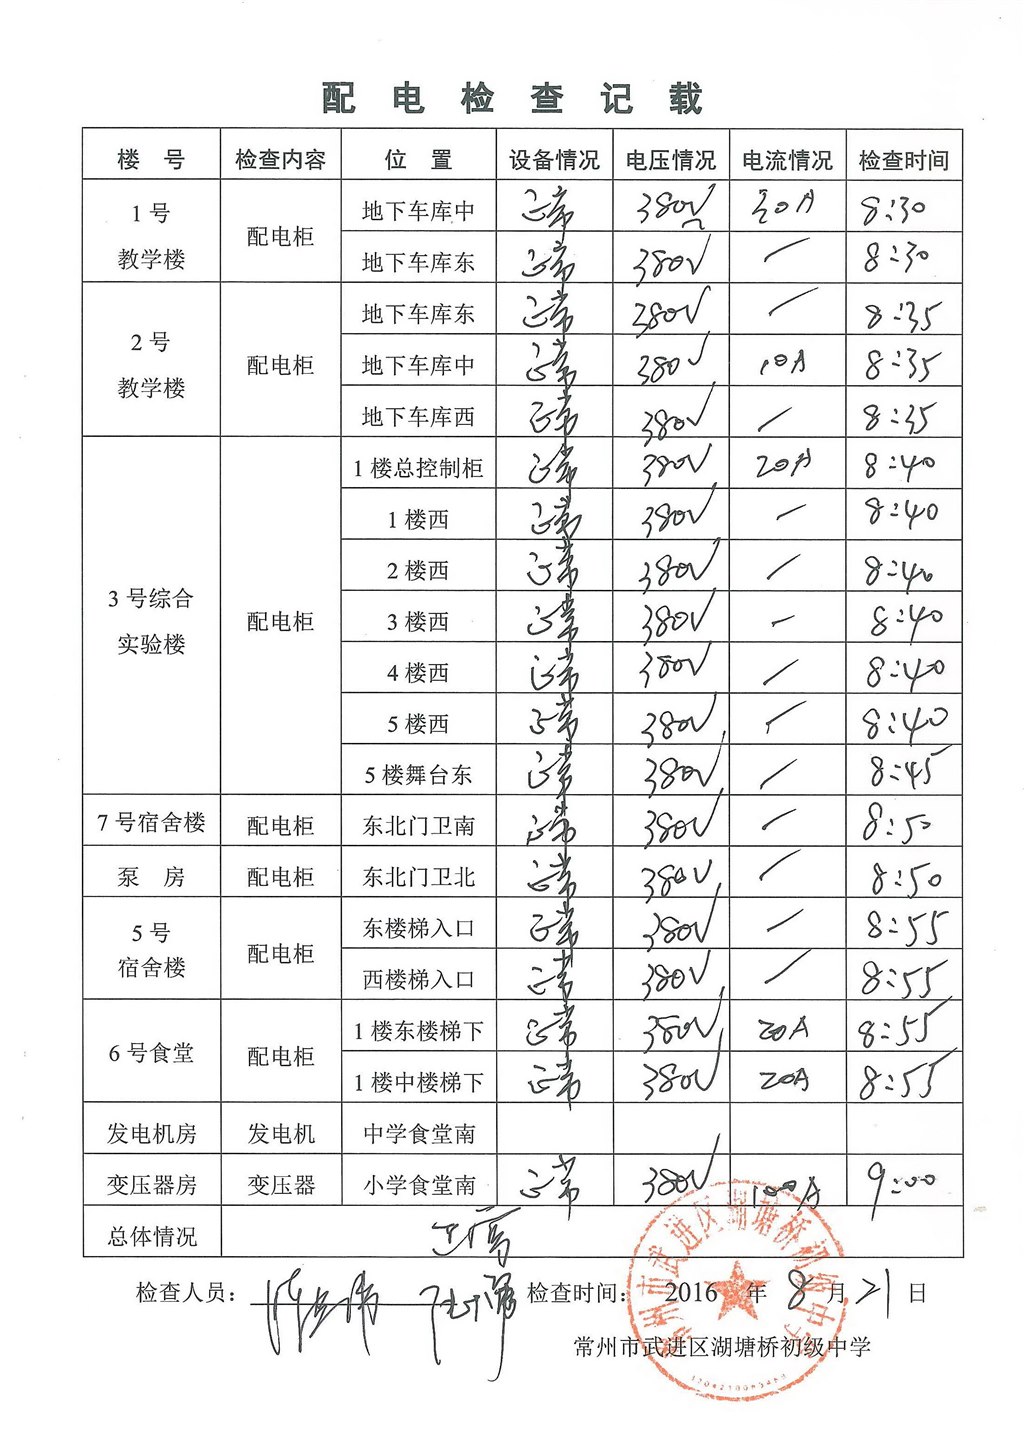 配电检查记载
楼号 检查内容 位置 设备情况 电压情况 电流情况 检查时间
1号教学楼 配电柜 地下车库中 正常 380V 20A 8:30
地下车库东 正常 380V — 8:30
2号教学楼 配电柜 地下车库东 正常 380V — 8:35
地下车库中 正常 380V 10A 8:35
地下车库西 正常 380V — 8:35
3号综合实验楼 配电柜 1楼总控制柜 正常 380V 20A 8:40
1楼西 正常 380V — 8:40
2楼西 正常 380V — 8:40
3楼西 正常 380V — 8:40
4楼西 正常 380V — 8:40
5楼西 正常 380V — 8:40
5楼舞台东 正常 380V — 8:45
7号宿舍楼 配电柜 东北门卫南 正常 380V — 8:50
泵房 配电柜 东北门卫北 正常 380V — 8:50
5号宿舍楼 配电柜 东楼梯入口 正常 380V — 8:55
西楼梯入口 正常 380V — 8:55
6号食堂 配电柜 1楼东楼梯下 正常 380V 20A 8:55
1楼中楼梯下 正常 380V 20A 8:55
发电机房 发电机 中学食堂南
变压器房 变压器 小学食堂南 正常 380V 100A 9:00
总体情况 正常
检查人员： 检查时间： 2016 年 8 月 21 日
常州市武进区湖塘桥初级中学
常州市武进区湖塘桥初级中学